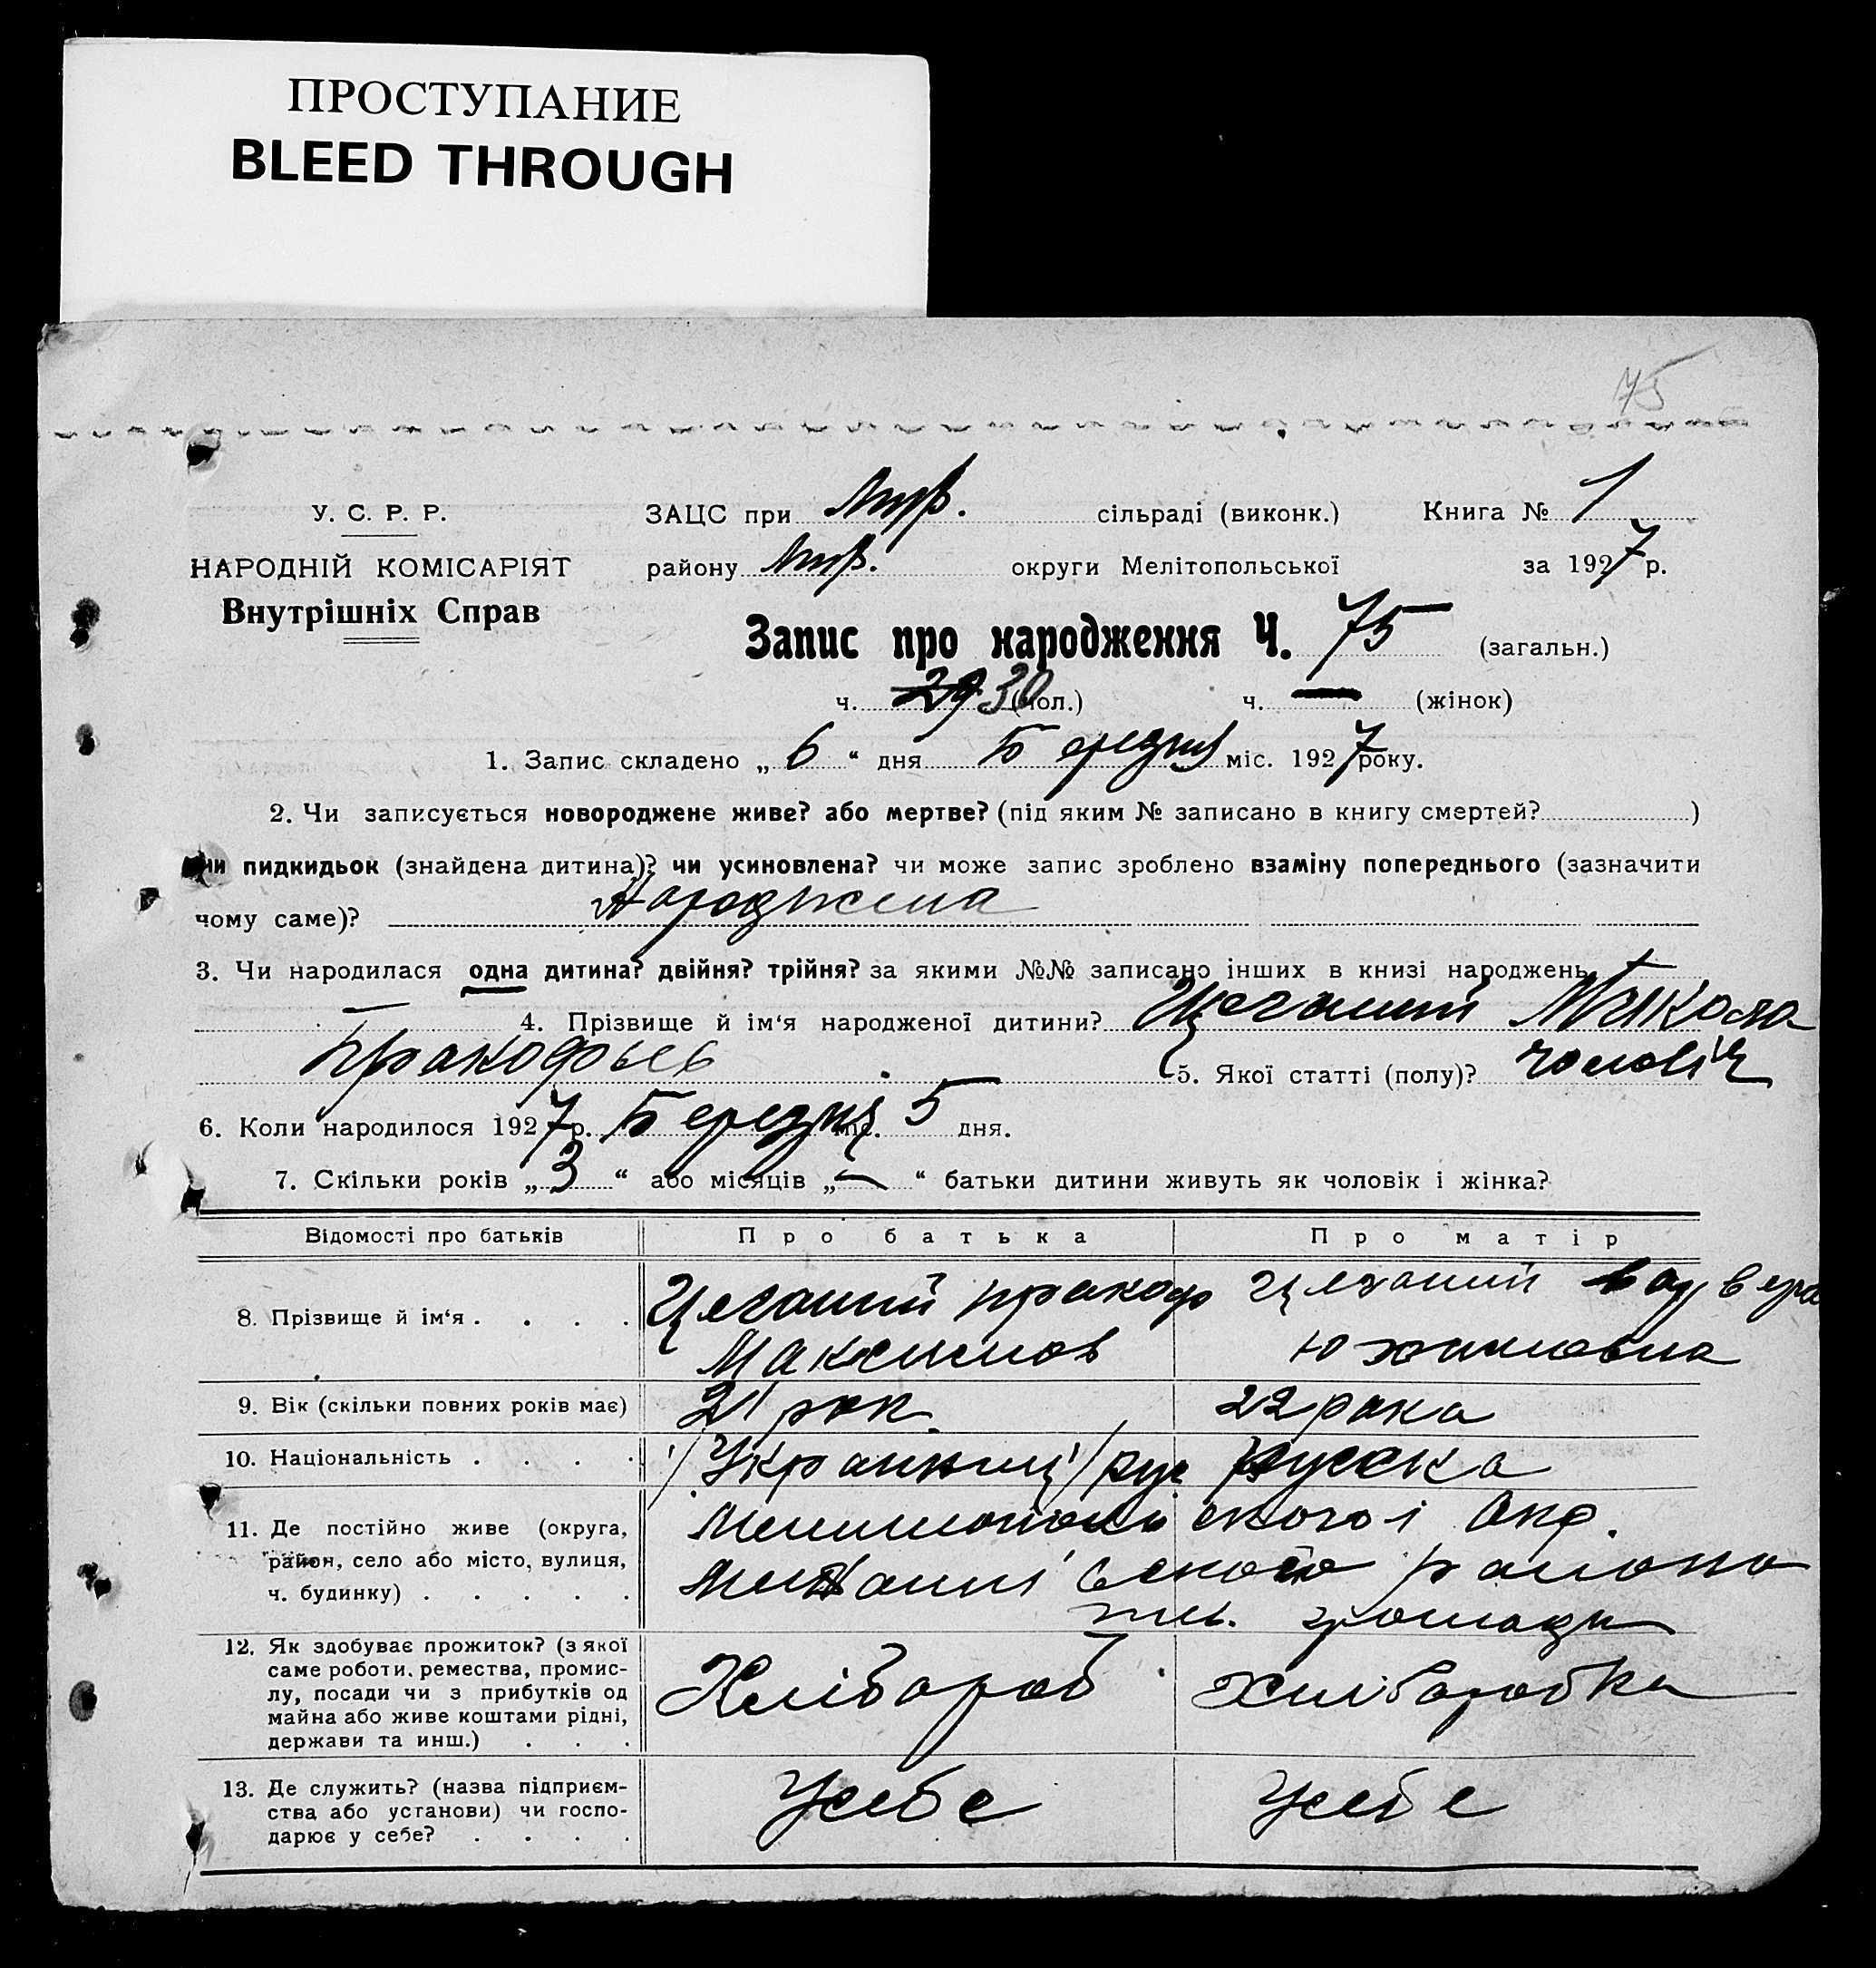 ПРОСТУПАНИЕ
BLEED THROUGH
75
У. С. Р. Р.
НАРОДНІЙ КОМІСАРІЯТ
Внутрішніх Справ
ЗАЦС при сільраді (виконк.) Книга № 1
району округи Мелітопольської за 1927 р.
Запис про народження Ч. 75 (загальн.)
ч. 29 30 (чол.) ч. — (жінок)
1. Запис складено „ 6 “ дня Березня міс. 1927 року.
2. Чи записується новороджене живе? або мертве? (під яким № записано в книгу смертей? )
чи пидкидьок (знайдена дитина)? чи усиновлена? чи може запис зроблено взаміну попереднього (зазначити
чому саме)? Народжена
3. Чи народилася одна дитина? двійня? трійня? за якими №№ записано інших в книзі народжень
4. Прізвище й ім‘я народженої дитини? Микола
Пракофьев 5. Якої статті (полу)? чоловіч
6. Коли народилося 1927 р. Березня міс. 5 дня.
7. Скільки років „ 3 “ або місяців „ — “ батьки дитини живуть як чоловік і жінка?
Відомості про батьків Про батька Про матір
8. Прізвище й ім‘я . . . . пракоф
Максимов
9. Вік (скільки повних років має) 21 рок. 22 рока
10. Національність . . . . Українец рус русска
11. Де постійно живе (округа, Окр.
район, село або місто, вулиця, района
ч. будинку) . . . . . громади
12. Як здобуває прожиток? (з якої
саме роботи, ремества, промис-
лу, посади чи з прибутків од Хлібороб Хліборобка
майна або живе коштами рідні,
держави та инш.) . . .
13. Де служить? (назва підприєм-
ства або установи) чи госпо- Усебе Усебе
дарює у себе? . . . .